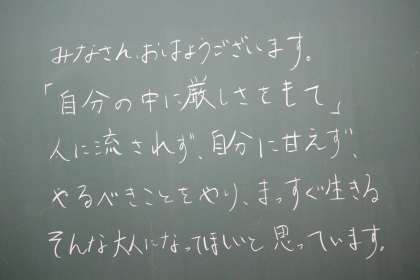 みなさん、おはようございます。
「自分の中に厳しさをもて」
人に流されず、自分に甘えず、
やるべきことをやり、まっすぐ生きる
そんな大人になってほしいと思っています。